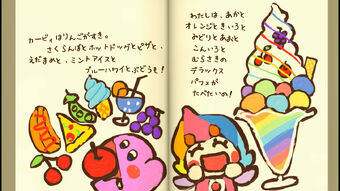 カービィはりんごがすき。
さくらんぼとホットドッグとピザと、
えだまめと、ミントアイスと
ブルーハワイとぶどうも!
わたしは、あかと
オレンジときいろと
みどりとあおと
こんいろと
むらさきの
デラックス
パフェが
たべたいの!